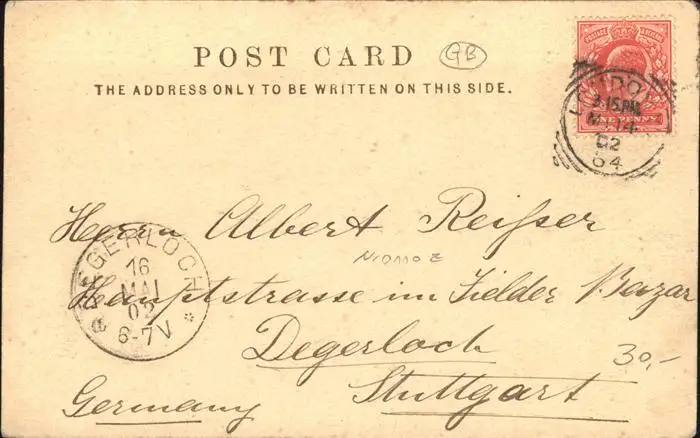 POST CARD
GB
THE ADDRESS ONLY TO BE WRITTEN ON THIS SIDE.
POSTAGE & REVENUE
ONE PENNY
LONDON
3.15 PM
MY 14
02
64
Herrn Albert Reißer
Hauptstrasse im Fielder Bazar
Degerloch
Stuttgart
Germany
DEGERLOCH
16
MAI
02
6-7V
30,-